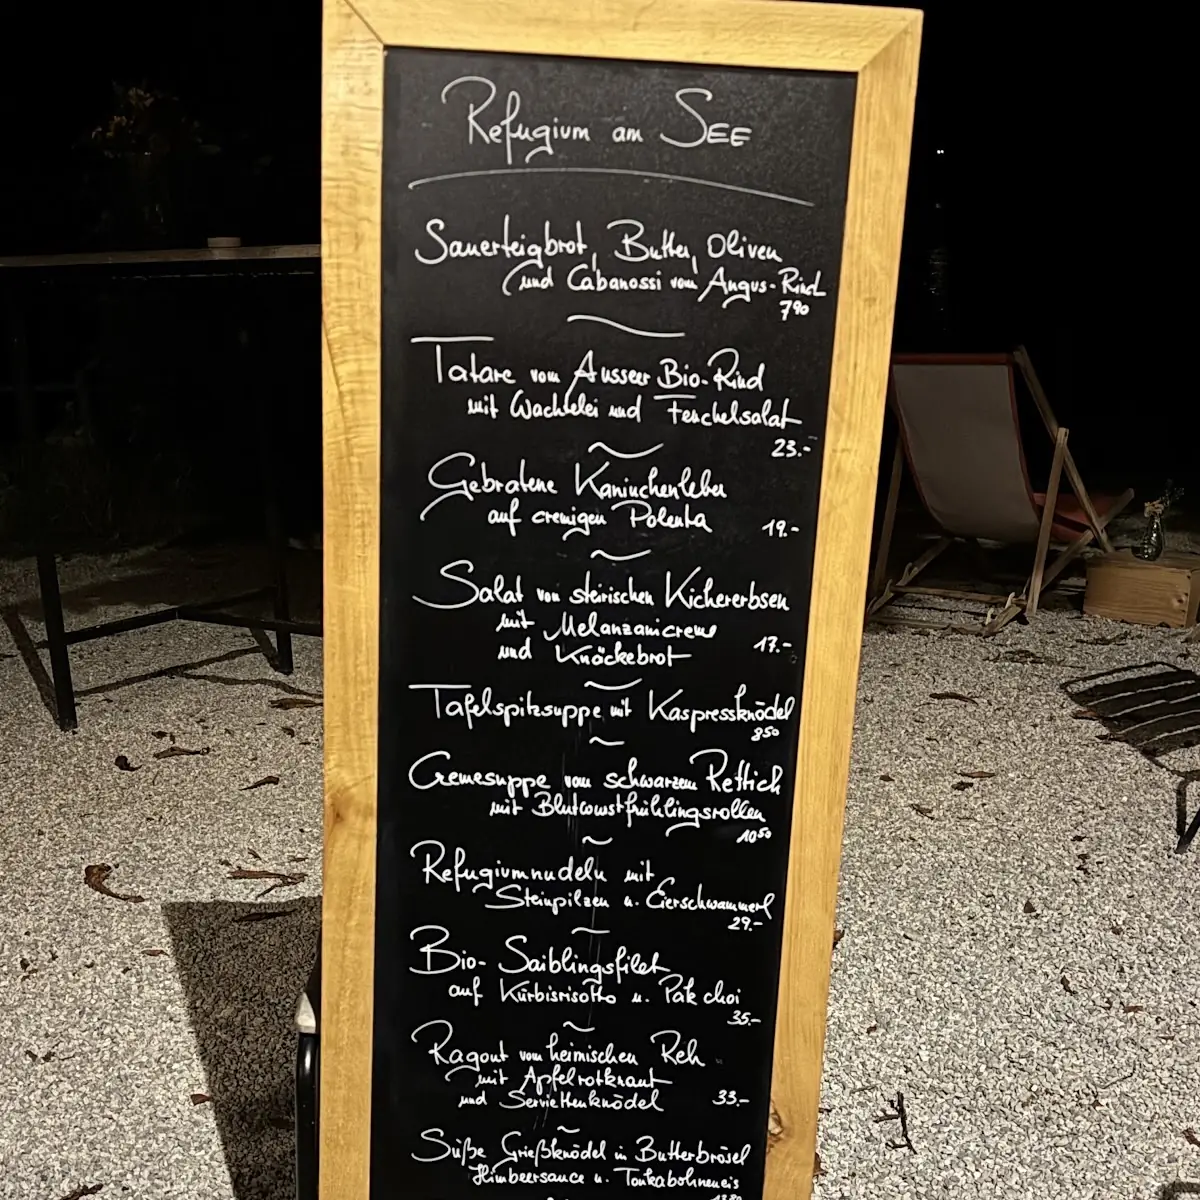 Refugium am SEE
Sauerteigbrot, Butter, Oliven
und Cabanossi vom Angus-Rind
7⁹⁰
Tatare vom Ausseer Bio-Rind
mit Wachtelei und Fenchelsalat
23.-
Gebratene Kaninchenleber
auf cremigen Polenta 19.-
Salat von steirischen Kichererbsen
mit Melanzanicreme
und Knäckebrot 17.-
Tafelspitzsuppe mit Kaspressknödel
8⁵⁰
Cremesuppe vom schwarzem Rettich
mit Blutwurstfrühlingsrollen
10⁵⁰
Refugiumnudeln mit
Steinpilzen u. Eierschwammerl
29.-
Bio-Saiblingsfilet
auf Kürbisrisotto u. Pak choi
35.-
Ragout vom heimischen Reh
mit Apfelrotkraut
und Serviettenknödel 33.-
Süße Grießknödel in Butterbrösel
Himbeersauce u. Tonkabohneneis